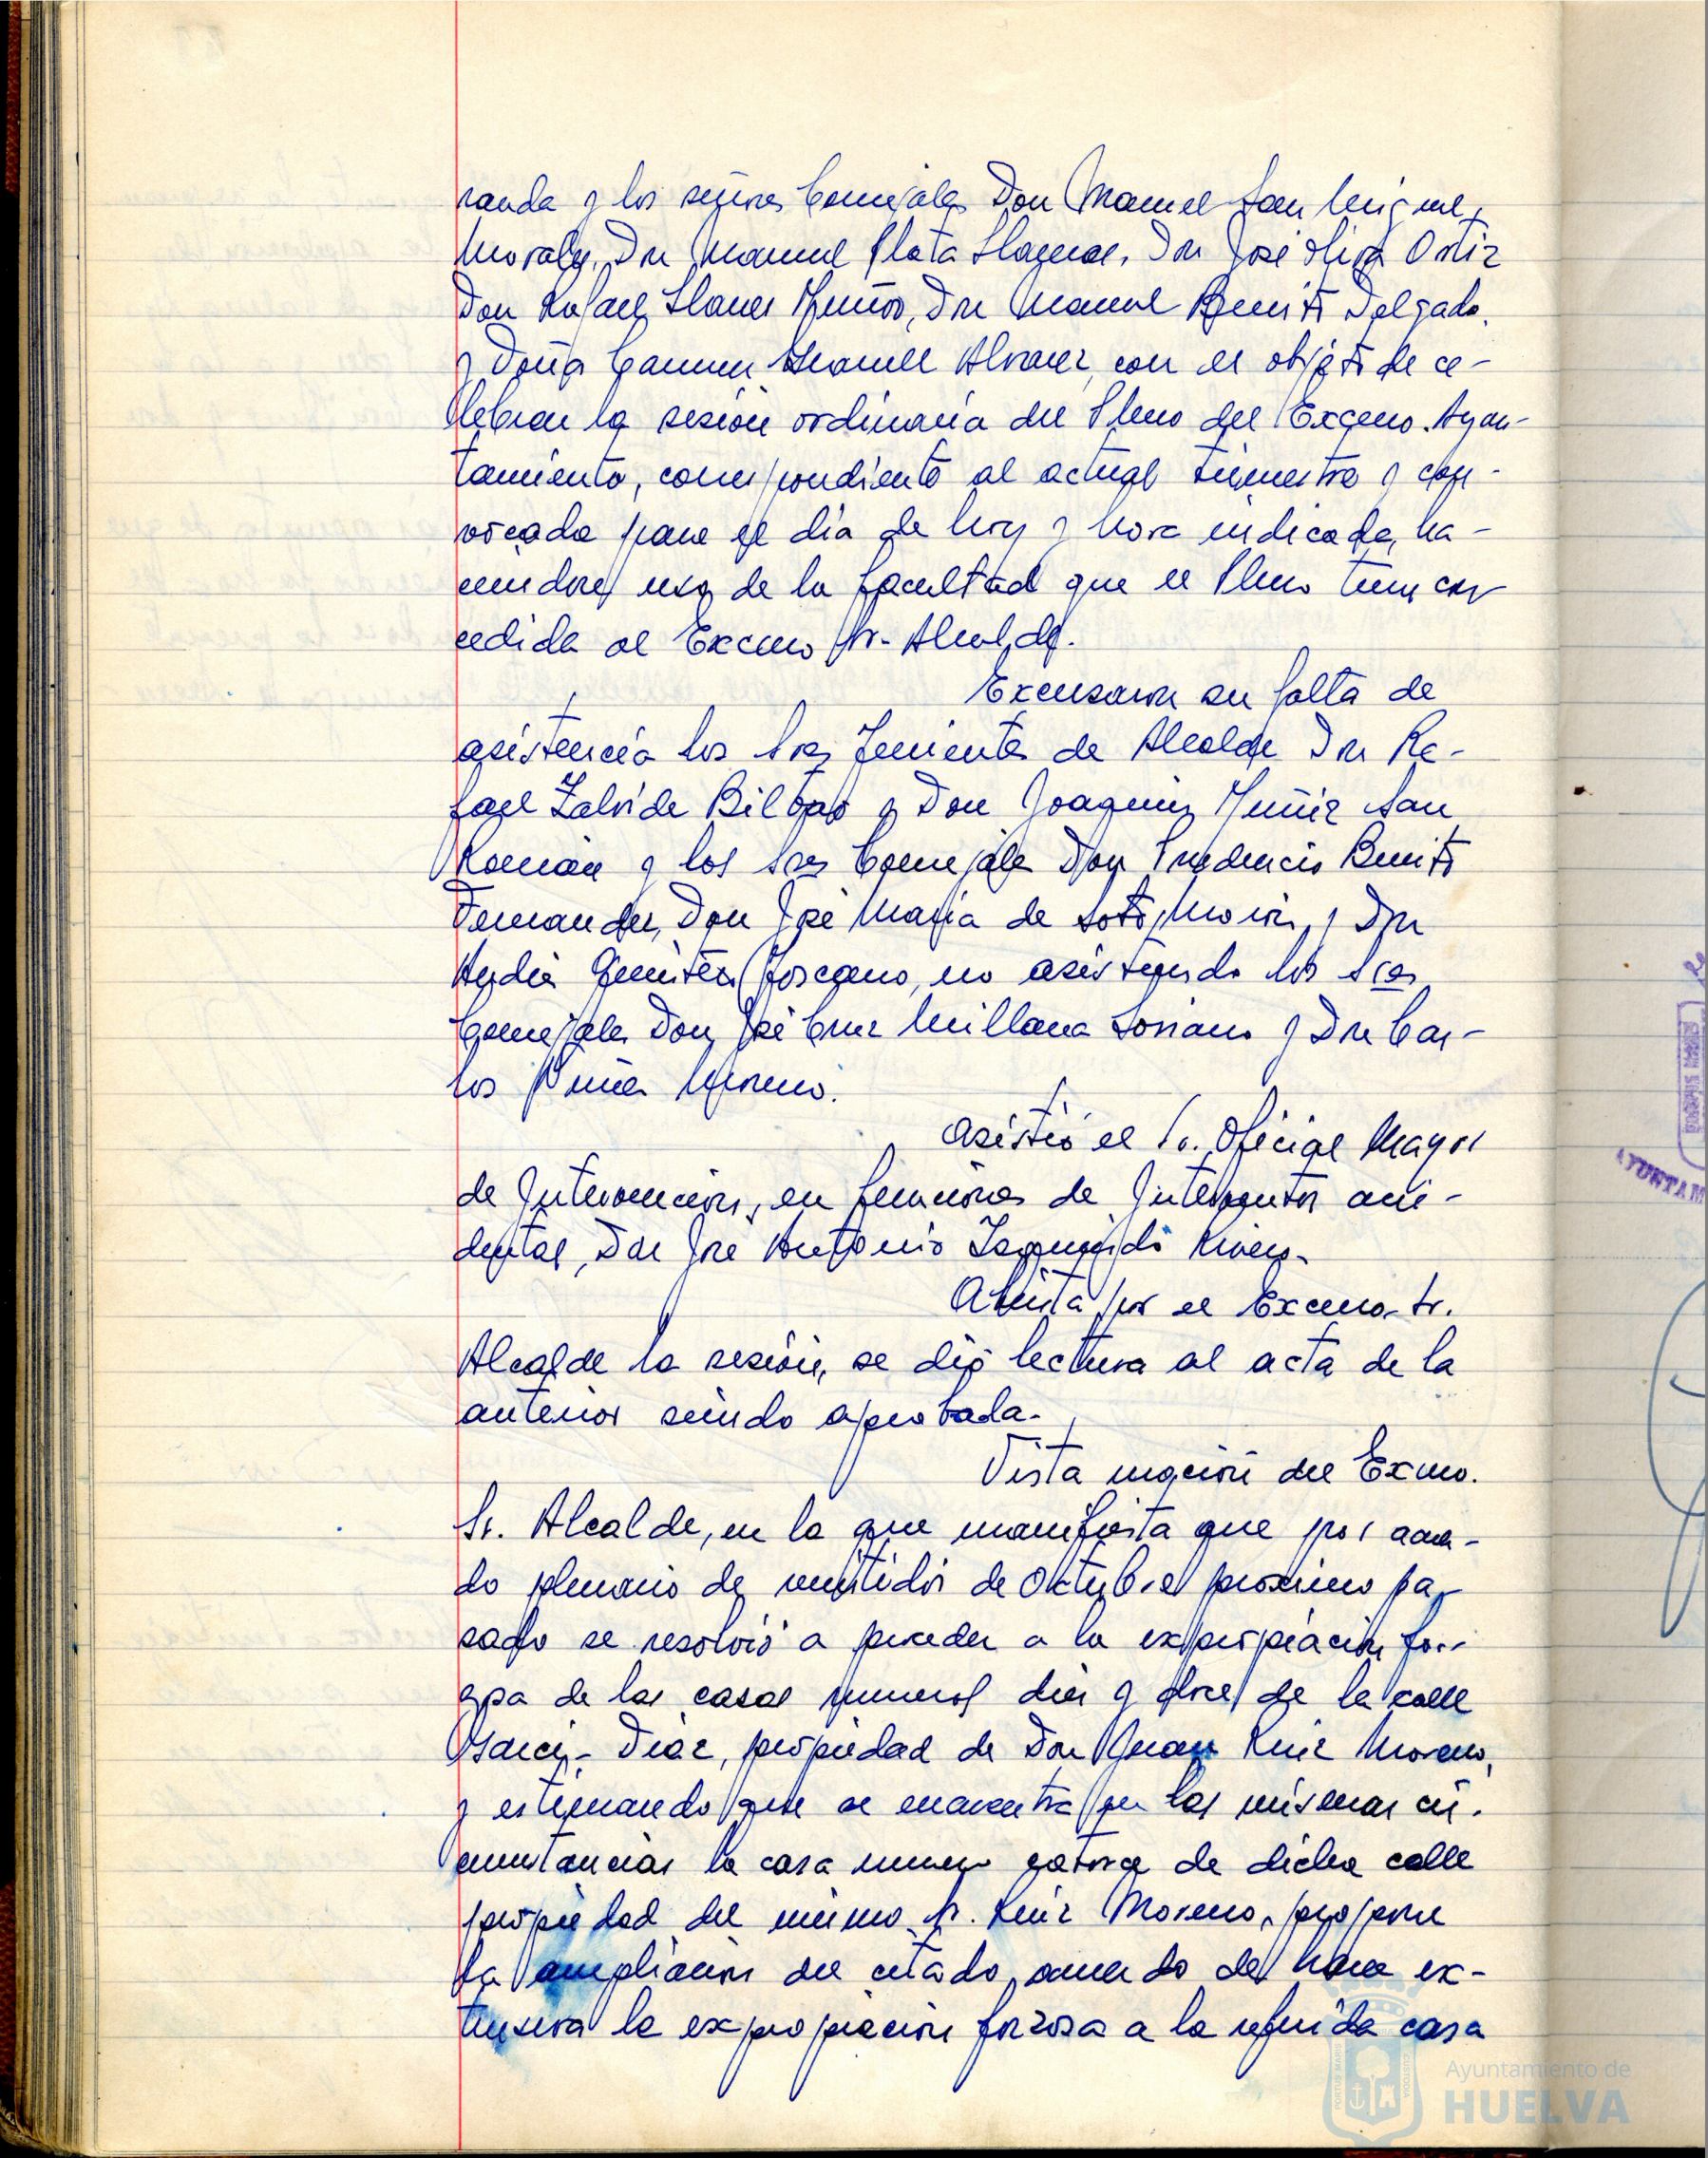 randa y los señores Concejales Don Manuel San Miguel
Morales, Don Manuel Plata Llagua, Don José Oliva Ortiz
Don Rafael Llanes Muñoz, Don Manuel Benito Delgado,
y Doña Carmen Alvarez, con el objeto de ce-
lebrar la sesión ordinaria del Pleno del Excmo. Ayun-
tamiento, correspondiente al actual trimestre y con-
vocada para el dia de hoy y hora indicada, ha-
ciendose uso de la facultad que el Pleno tiene con
cedida al Excmo Sr. Alcalde.
Excusaron su falta de
asistencia los Sres Tenientes de Alcalde Don Ra-
fael Zalvide Bilbao y Don Joaquin Muñiz San
Román y los Sres Concejales Don Prudencio Benito
Fernandez, Don José Maria de Soto Moron, y Don
Quintero Toscano, no asistiendo los Sres
Concejales Don José Cruz Millana Soriano y Don Car-
los Moreno.
Asistió el Sr. Oficial Mayor
de Intervención, en funciones de Interventor acci-
dental, Don José Antonio Rivero.
Abierta por el Excmo. Sr.
Alcalde la sesión, se dió lectura al acta de la
anterior siendo aprobada.
Vista moción del Excmo.
Sr. Alcalde, en la que manifiesta que por acuer-
do plenario de veintidos de Octubre proximo pa-
sado se resolvió a proceder a la expropiación for-
zosa de las casas numeros diez y doce de la calle
Garci-Diaz, propiedad de Don Juan Ruiz Moreno,
y estimando que se encuentra en las mismas cir-
cunstancias la casa numero catorce de dicha calle
propiedad del mismo Sr. Ruiz Moreno, propone
la ampliación del citado acuerdo de hacer ex-
tensiva la expropiación forzosa a la referida casa
Ayuntamiento de
HUELVA